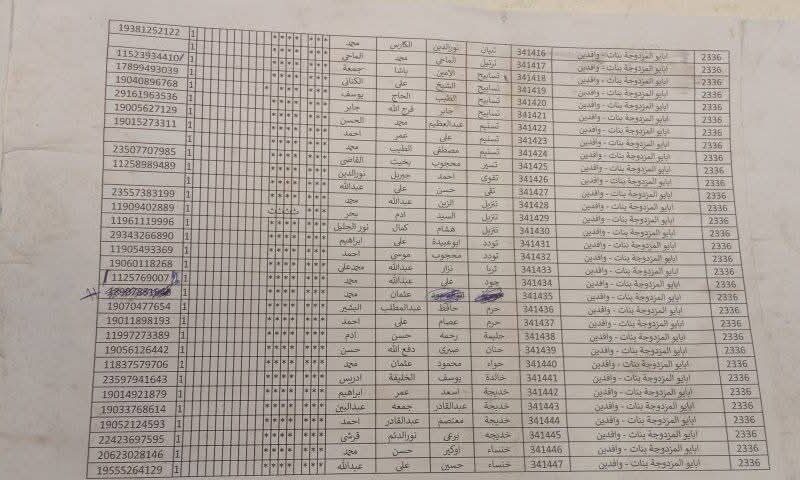 2336 ابايو المزدوجة بنات - وافدين 341416 تبيان نورالدين الكارس محمد *** **** 1 19381252122
2336 ابايو المزدوجة بنات - وافدين 341417 ترتيل الماحي محمد الماحي *** **** 1
2336 ابايو المزدوجة بنات - وافدين 341418 تسابيح الامين باشا جمعة *** **** 1 11523934410
2336 ابايو المزدوجة بنات - وافدين 341419 تسابيح الشيخ على الكنانى *** **** 1 17899493039
2336 ابايو المزدوجة بنات - وافدين 341420 تسابيح الطيب الحاج يوسف *** **** 1 19040896768
2336 ابايو المزدوجة بنات - وافدين 341421 تسابيح جابر فرج الله جابر *** **** 1 29161963536
2336 ابايو المزدوجة بنات - وافدين 341422 تسنيم عبدالعظيم محمد الحسن *** **** 1 19005627129
2336 ابايو المزدوجة بنات - وافدين 341423 تسنيم على عمر احمد *** **** 1 19015273311
2336 ابايو المزدوجة بنات - وافدين 341424 تسنيم مصطفى الطيب محمد *** **** 1
2336 ابايو المزدوجة بنات - وافدين 341425 تسير محجوب بخيت القاضى *** **** 1 23507707985
2336 ابايو المزدوجة بنات - وافدين 341426 تقوى احمد جبريل نورالدين *** **** 1 11258989489
2336 ابايو المزدوجة بنات - وافدين 341427 تقى حسن على عبدالله *** **** 1
2336 ابايو المزدوجة بنات - وافدين 341428 تنزيل الزين عبدالله محمد *** **** 1 23557383199
2336 ابايو المزدوجة بنات - وافدين 341429 تنزيل السيد ادم بحر *** ث ث ث ث 1 11909402889
2336 ابايو المزدوجة بنات - وافدين 341430 تنزيل هشام كمال نور الجليل *** **** 1 11961119996
2336 ابايو المزدوجة بنات - وافدين 341431 تودد ابوعبيدة على ابراهيم *** **** 1 29343266890
2336 ابايو المزدوجة بنات - وافدين 341432 تودد محجوب موسى احمد *** **** 1 11905493369
2336 ابايو المزدوجة بنات - وافدين 341433 ثريا نزار عبدالله محمدعلى *** **** 1 19060118268
2336 ابايو المزدوجة بنات - وافدين 341434 جود على عبدالله محمد *** **** 1 1125769007
2336 ابايو المزدوجة بنات - وافدين 341435 عثمان محمد *** **** 1
2336 ابايو المزدوجة بنات - وافدين 341436 حرم حافظ عبدالمطلب البشير *** **** 1 19070477654
2336 ابايو المزدوجة بنات - وافدين 341437 حرم عصام على احمد *** **** 1 19011898193
2336 ابايو المزدوجة بنات - وافدين 341438 حليمة رحمه حسن ادم *** **** 1 11997273389
2336 ابايو المزدوجة بنات - وافدين 341439 حنان صبرى دفع الله حسن *** **** 1 19056126442
2336 ابايو المزدوجة بنات - وافدين 341440 حواء محمود عثمان محمد *** **** 1 11837579706
2336 ابايو المزدوجة بنات - وافدين 341441 خالدة يوسف الخليفة ادريس *** **** 1 23597941643
2336 ابايو المزدوجة بنات - وافدين 341442 خديجة اسعد عمر ابراهيم *** **** 1 19014921879
2336 ابايو المزدوجة بنات - وافدين 341443 خديجة عبدالقادر جمعه عبدالبين *** **** 1 19033768614
2336 ابايو المزدوجة بنات - وافدين 341444 خديجة معتصم عبدالقادر احمد *** **** 1 19052124593
2336 ابايو المزدوجة بنات - وافدين 341445 خديجه برعى نورالدئم قرشى *** **** 1 22423697595
2336 ابايو المزدوجة بنات - وافدين 341446 خنساء اوكير حسن محمد *** **** 1 20623028146
2336 ابايو المزدوجة بنات - وافدين 341447 خنساء حسين على عبدالله *** **** 1 19555264129